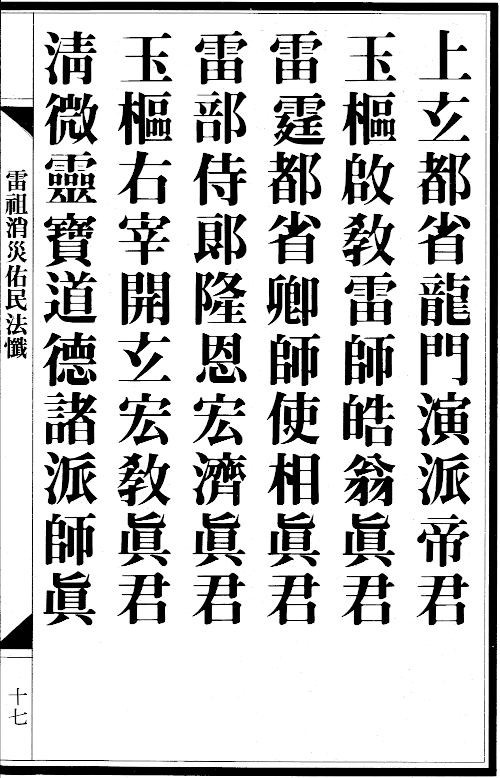 上玄都省龍門演派帝君
玉樞啟敎雷師皓翁眞君
雷霆都省卿師使相眞君
雷部侍郎隆恩宏濟眞君
玉樞右宰開玄宏敎眞君
淸微靈寶道德諸派師眞
雷祖消災佑民法懺
十七